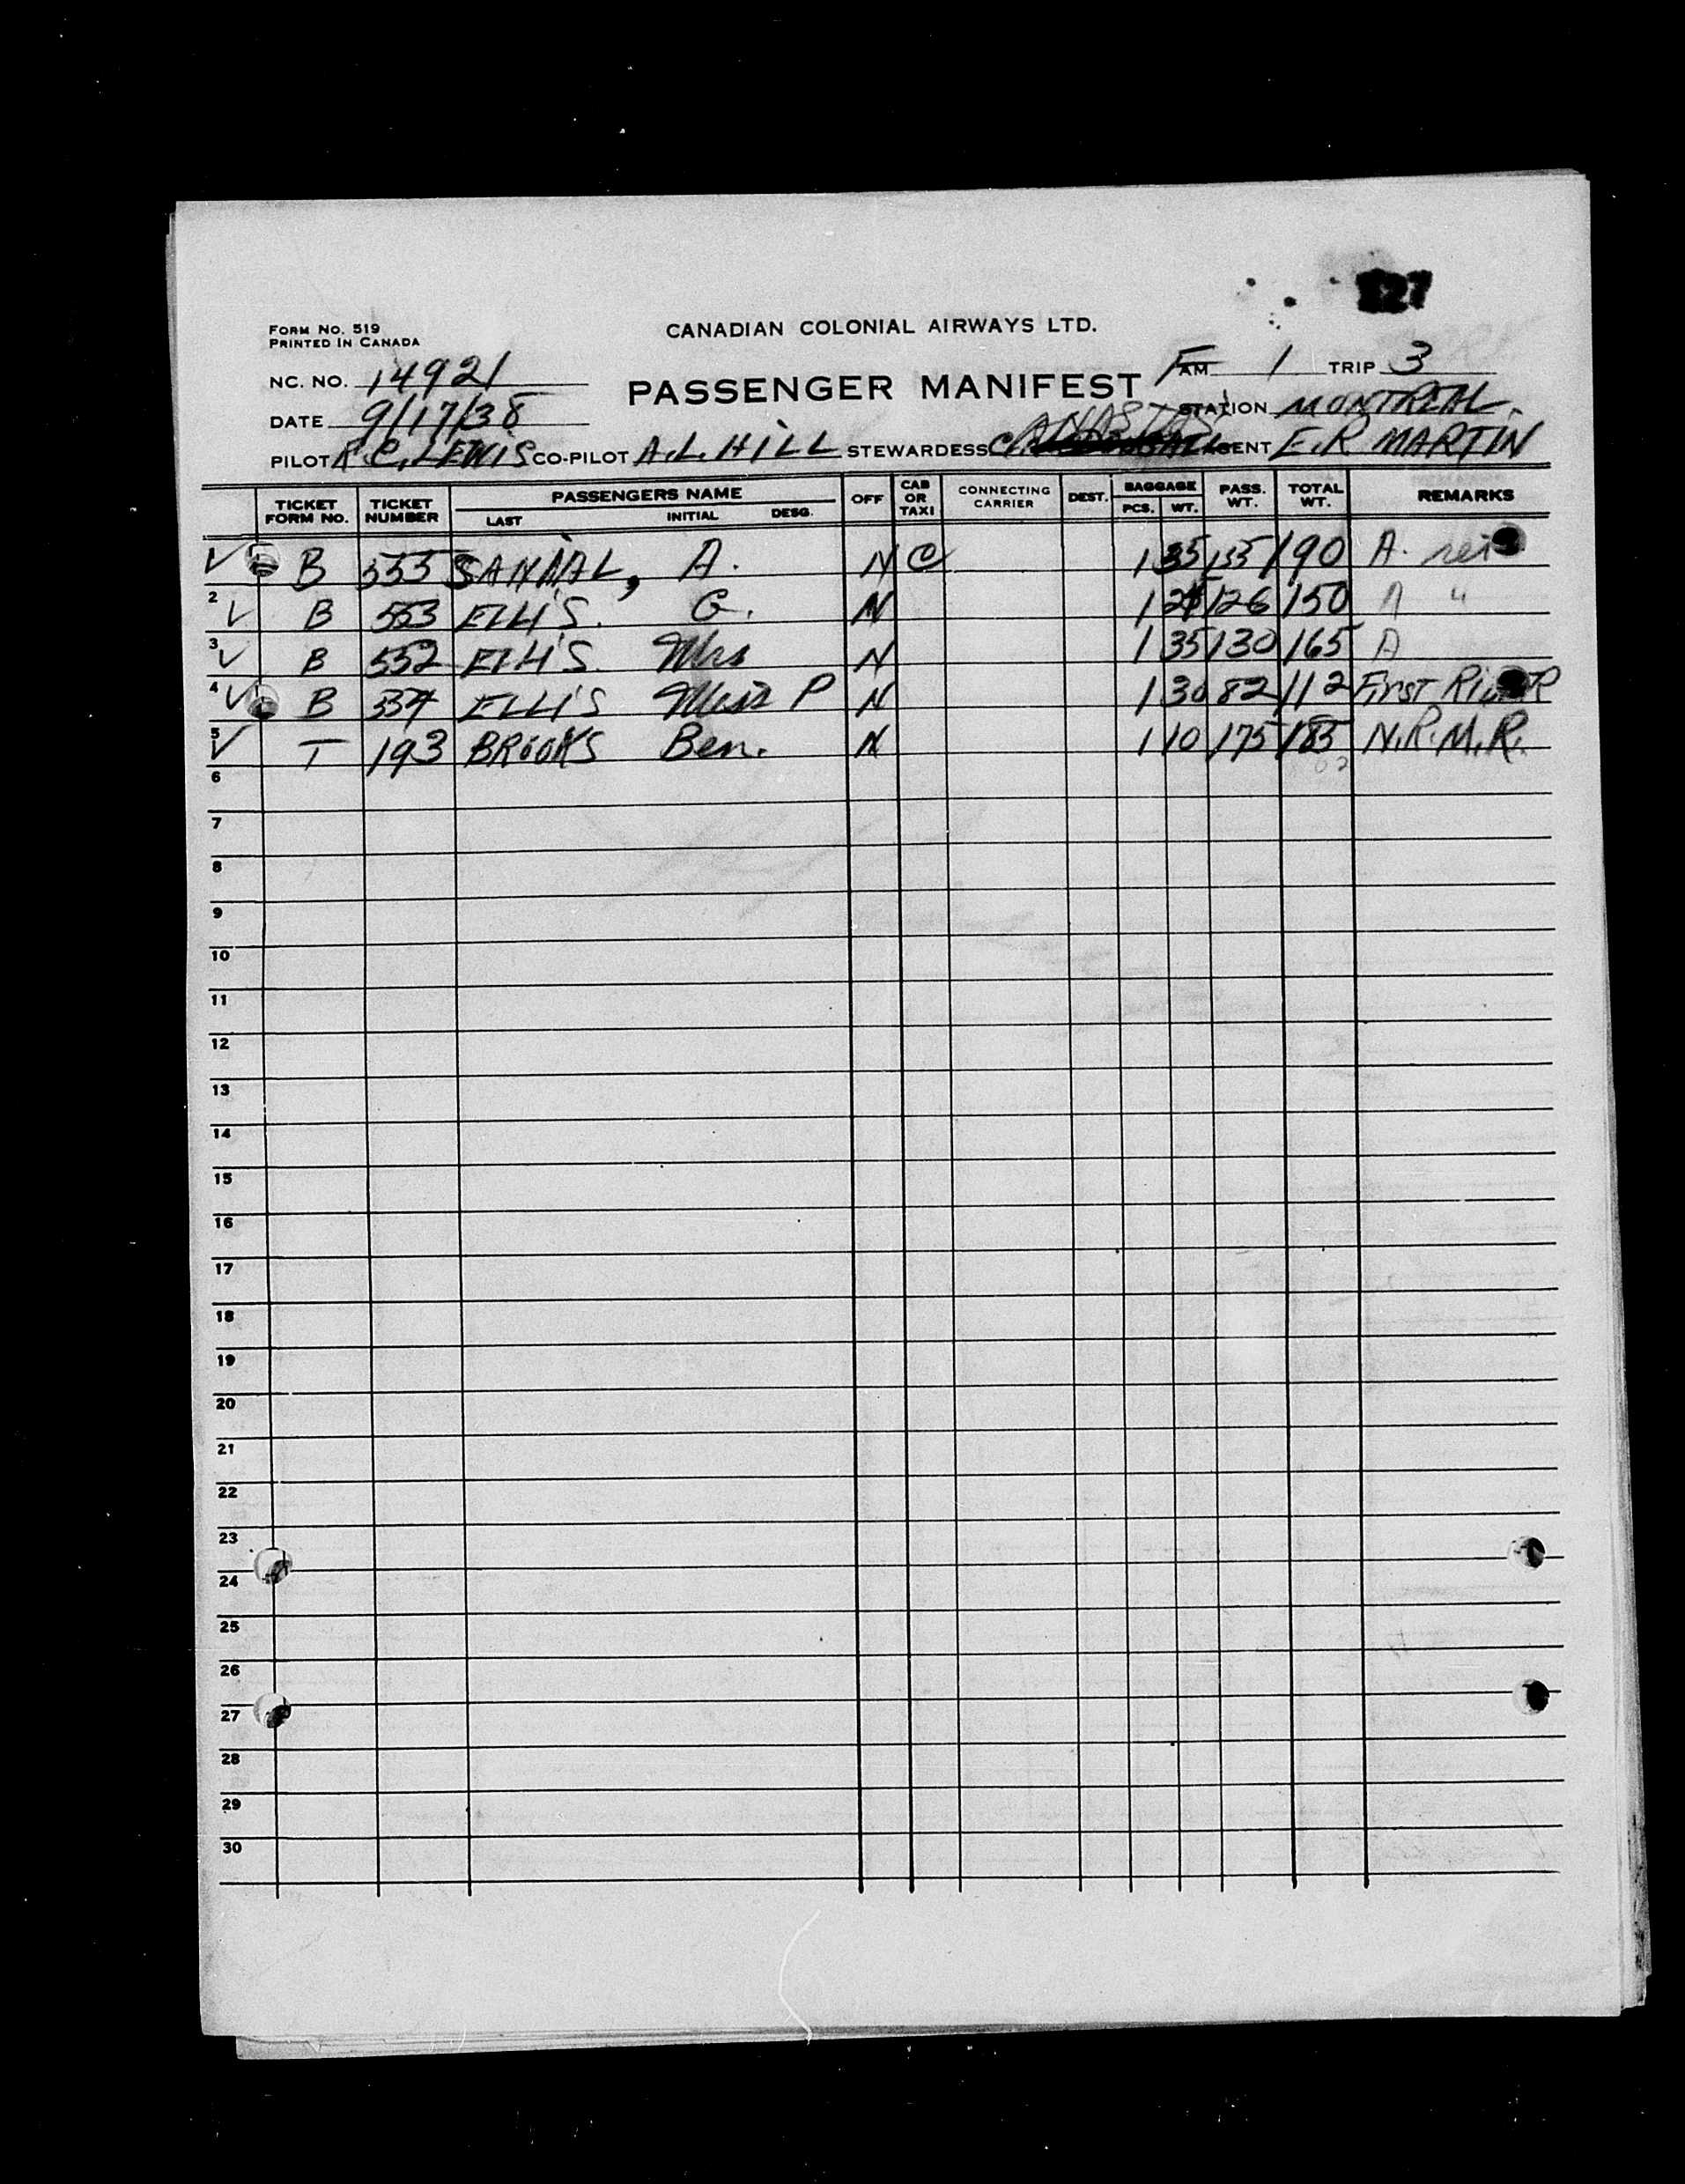 127
FORM NO. 519
PRINTED IN CANADA
CANADIAN COLONIAL AIRWAYS LTD.
NC. NO. 14921
PASSENGER MANIFEST
FAM 1 TRIP 3
DATE 9/17/38
STATION MONTREAL.
PILOT R.C. LEWIS CO-PILOT A.L. HILL STEWARDESS AGENT E.R. MARTIN
TICKET FORM NO. TICKET NUMBER PASSENGERS NAME LAST INITIAL DESG. OFF CAB OR TAXI CONNECTING CARRIER DEST. BAGGAGE PCS. WT. PASS. WT. TOTAL WT. REMARKS
1 B 555 A. N C 1 35 155 190 A.
2 B 553 ELLIS. G. N 1 24 126 150 A "
3 B 552 ELLIS. Mrs N 1 35 130 165 A
4 B 334 ELLIS Miss P N 1 30 82 112 First RIDER
5 T 193 BROOKS Ben. N 1 10 175 185 N.R.M.R.
6
7
8
9
10
11
12
13
14
15
16
17
18
19
20
21
22
23
24
25
26
27
28
29
30